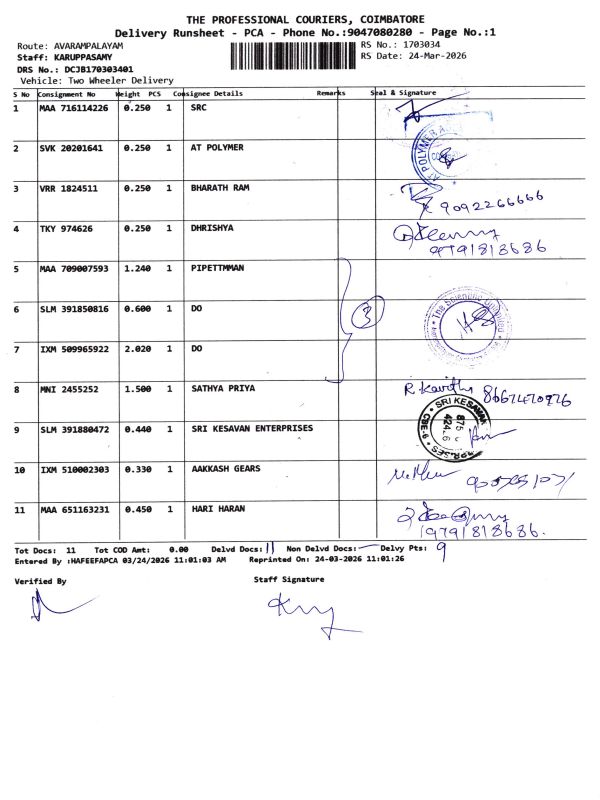 THE PROFESSIONAL COURIERS, COIMBATORE
Delivery Runsheet - PCA - Phone No.:9047080280 - Page No.:1
Route: AVARAMPALAYAM
RS No.: 1703034
Staff: KARUPPASAMY
RS Date: 24-Mar-2026
DRS No.: DCJB170303401
Vehicle: Two Wheeler Delivery
S No Consignment No Weight PCS Consignee Details Remarks Seal & Signature
1 MAA 716114226 0.250 1 SRC
2 SVK 20201641 0.250 1 AT POLYMER
AT POLYMER
3 VRR 1824511 0.250 1 BHARATH RAM
9092266666
4 TKY 974626 0.250 1 DHRISHYA
9791818686
5 MAA 709007593 1.240 1 PIPETTMMAN
6 SLM 391850816 0.600 1 DO
3
The Scientific
7 IXM 509965922 2.020 1 DO
8 MNI 2455252 1.500 1 SATHYA PRIYA
R. Kavitha 8667470926
9 SLM 391880472 0.440 1 SRI KESAVAN ENTERPRISES
SRI KESAVAN
CBE-9
10 IXM 510002303 0.330 1 AAKKASH GEARS
11 MAA 651163231 0.450 1 HARI HARAN
9791818686.
Tot Docs: 11 Tot COD Amt: 0.00 Delvd Docs: 11 Non Delvd Docs: — Delvy Pts: 9
Entered By :HAFEEFAPCA 03/24/2026 11:01:03 AM Reprinted On: 24-03-2026 11:01:26
Verified By
Staff Signature